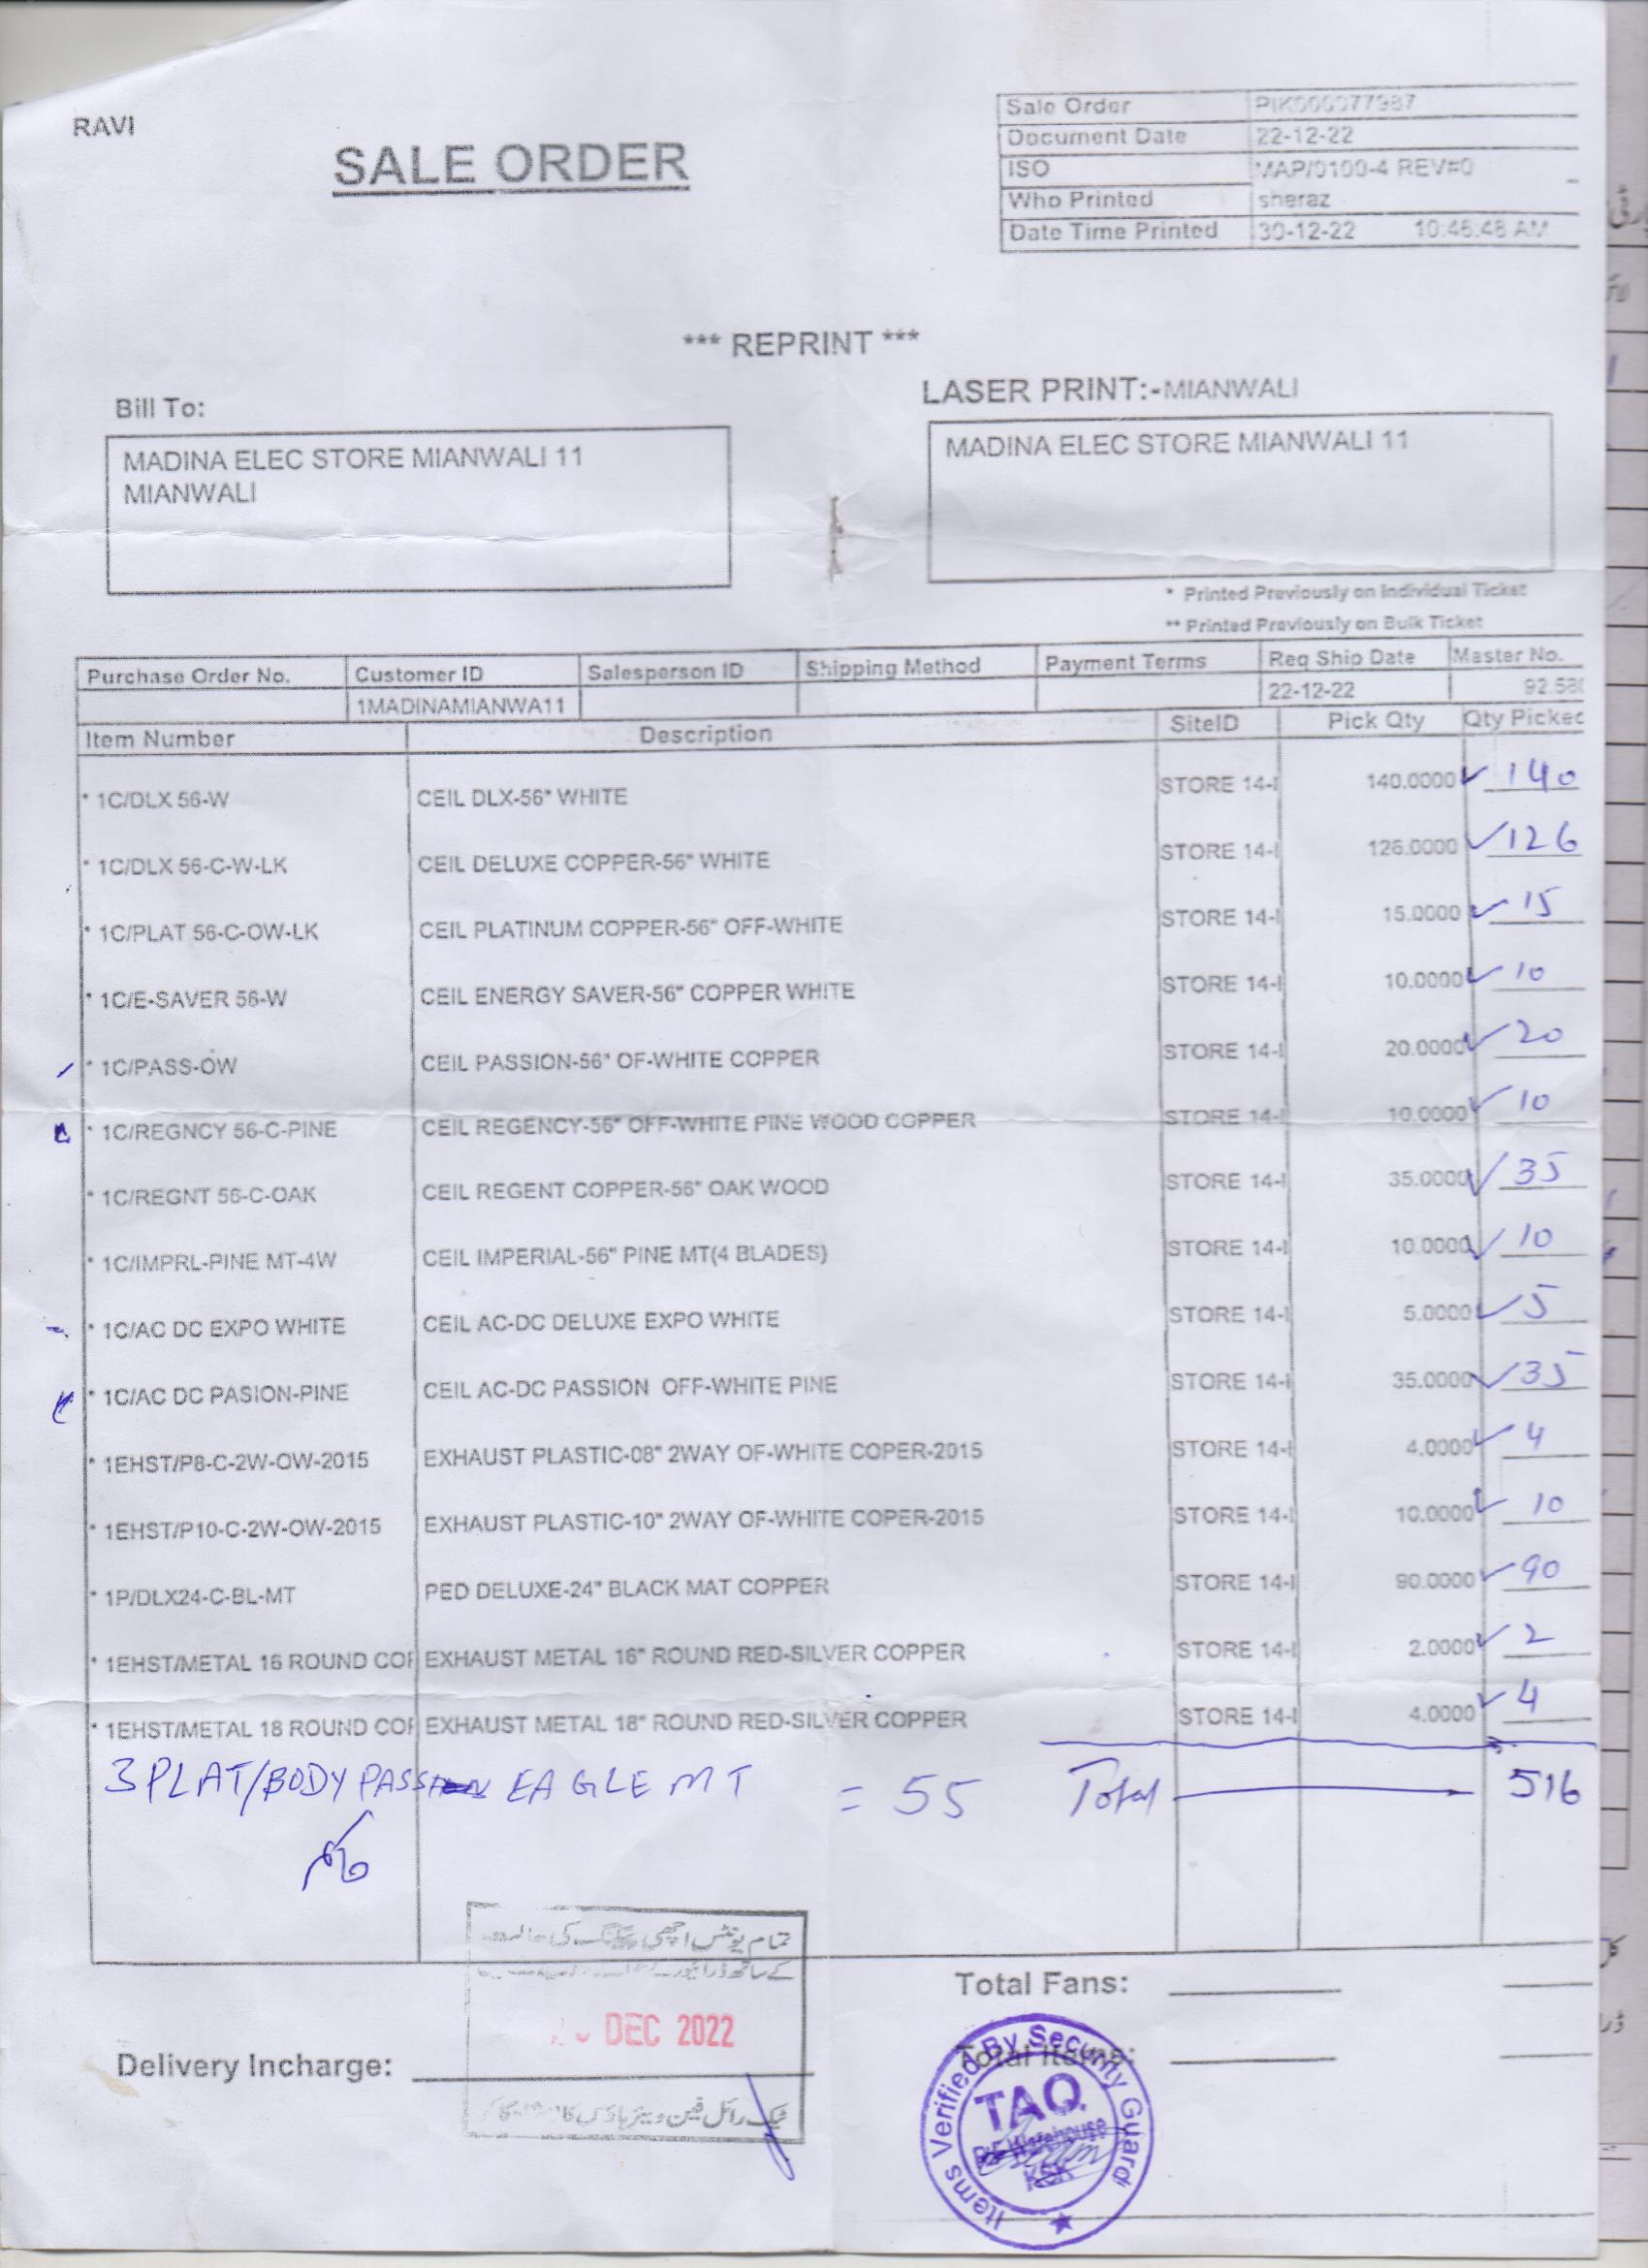 RAVI
SALE ORDER
Sale Order PIK000077987
Document Date 22-12-22
ISO MAP/0100-4 REV#0
Who Printed sheraz
Date Time Printed 30-12-22 10:46:48 AM
*** REPRINT ***
Bill To:
LASER PRINT:-MIANWALI
MADINA ELEC STORE MIANWALI 11
MIANWALI
MADINA ELEC STORE MIANWALI 11
* Printed Previously on Individual Ticket
** Printed Previously on Bulk Ticket
Purchase Order No. Customer ID Salesperson ID Shipping Method Payment Terms Req Ship Date Master No.
1MADINAMIANWA11 22-12-22 92,580
Item Number Description SiteID Pick Qty Qty Picked
* 1C/DLX 56-W CEIL DLX-56" WHITE STORE 14-I 140.0000 140
* 1C/DLX 56-C-W-LK CEIL DELUXE COPPER-56" WHITE STORE 14-I 126.0000 126
* 1C/PLAT 56-C-OW-LK CEIL PLATINUM COPPER-56" OFF-WHITE STORE 14-I 15.0000 15
* 1C/E-SAVER 56-W CEIL ENERGY SAVER-56" COPPER WHITE STORE 14-I 10.0000 10
* 1C/PASS-OW CEIL PASSION-56" OF-WHITE COPPER STORE 14-I 20.0000 20
* 1C/REGNCY 56-C-PINE CEIL REGENCY-56" OFF-WHITE PINE WOOD COPPER STORE 14-I 10.0000 10
* 1C/REGNT 56-C-OAK CEIL REGENT COPPER-56" OAK WOOD STORE 14-I 35.0000 35
* 1C/IMPRL-PINE MT-4W CEIL IMPERIAL-56" PINE MT(4 BLADES) STORE 14-I 10.0000 10
* 1C/AC DC EXPO WHITE CEIL AC-DC DELUXE EXPO WHITE STORE 14-I 5.0000 5
* 1C/AC DC PASION-PINE CEIL AC-DC PASSION OFF-WHITE PINE STORE 14-I 35.0000 35
* 1EHST/P8-C-2W-OW-2015 EXHAUST PLASTIC-08" 2WAY OF-WHITE COPER-2015 STORE 14-I 4.0000 4
* 1EHST/P10-C-2W-OW-2015 EXHAUST PLASTIC-10" 2WAY OF-WHITE COPER-2015 STORE 14-I 10.0000 10
* 1P/DLX24-C-BL-MT PED DELUXE-24" BLACK MAT COPPER STORE 14-I 90.0000 90
* 1EHST/METAL 16 ROUND COP EXHAUST METAL 16" ROUND RED-SILVER COPPER STORE 14-I 2.0000 2
* 1EHST/METAL 18 ROUND COP EXHAUST METAL 18" ROUND RED-SILVER COPPER STORE 14-I 4.0000 4
3 PLAT/BODY PASSION EAGLE MT = 55 Total 516
تمام یونٹس اچھی پیکنگ کی
کے ساتھ ڈرائیور
DEC 2022
Total Fans:
Total Items:
Delivery Incharge:
Items Verified By Security Guard
TAQ
Warehouse
KSK